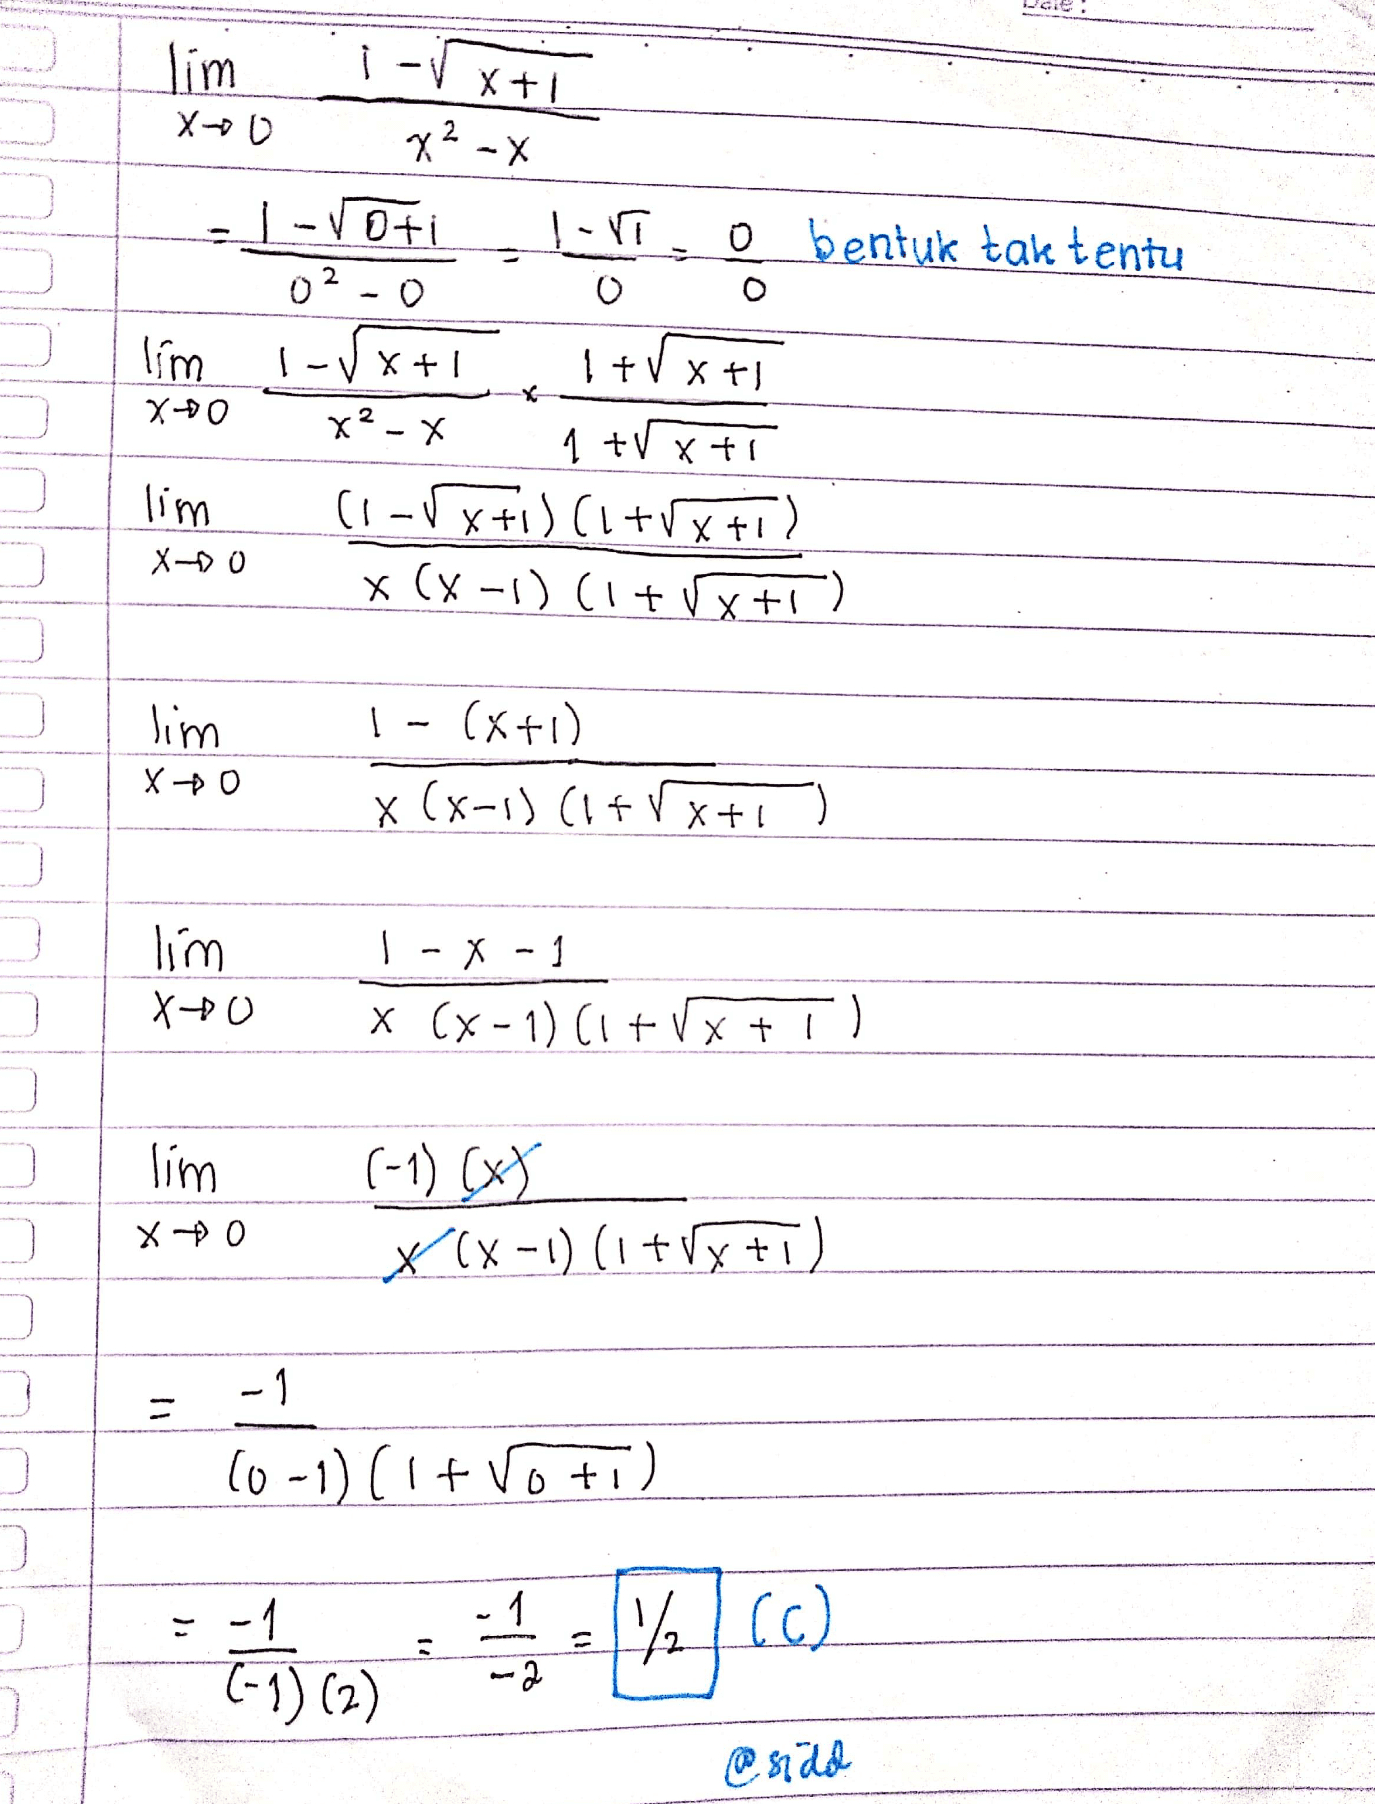 Date:
lim x→0 (1 - √(x+1)) / (x² - x)
= (1 - √(0+1)) / (0² - 0) = (1 - √1) / 0 = 0/0 bentuk tak tentu
lim x→0 (1 - √(x+1)) / (x² - x) × (1 + √(x+1)) / (1 + √(x+1))
lim x→0 (1 - √(x+1)) (1 + √(x+1)) / x (x - 1) (1 + √(x+1))
lim x→0 1 - (x+1) / x (x-1) (1 + √(x+1))
lim x→0 1 - x - 1 / x (x - 1) (1 + √(x+1))
lim x→0 (-1) (x) / x (x - 1) (1 + √(x+1))
= -1 / (0 - 1) (1 + √(0+1))
= -1 / (-1) (2) = -1 / -2 = 1/2 (C)